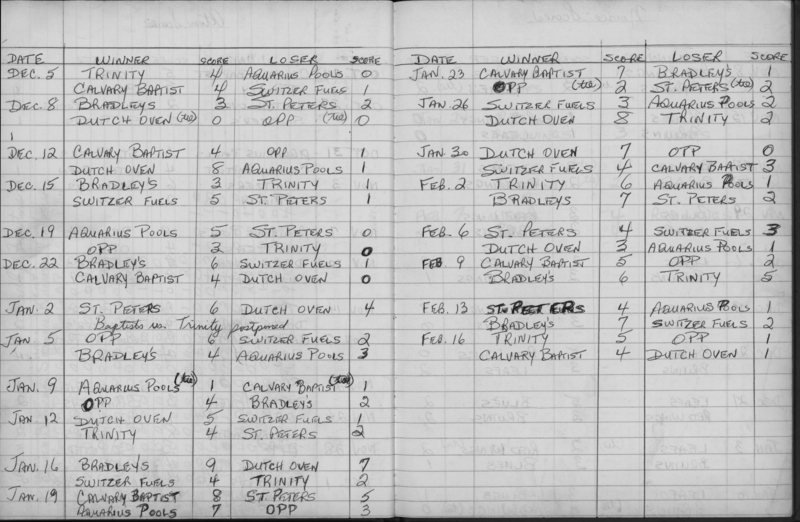 DATE WINNER SCORE LOSER SCORE
DEC. 5 TRINITY 4 AQUARIUS POOLS 0
CALVARY BAPTIST 4 SWITZER FUELS 1
DEC. 8 BRADLEYS 3 ST. PETERS 2
DUTCH OVEN (tie) 0 OPP (tie) 0
DEC. 12 CALVARY BAPTIST 4 OPP 1
DUTCH OVEN 8 AQUARIUS POOLS 1
DEC. 15 BRADLEY'S 3 TRINITY 1
SWITZER FUELS 5 ST. PETERS 1
DEC. 19 AQUARIUS POOLS 5 ST. PETERS 0
OPP 2 TRINITY 0
DEC. 22 BRADLEY'S 6 SWITZER FUELS 1
CALVARY BAPTIST 4 DUTCH OVEN 0
JAN. 2 ST. PETERS 6 DUTCH OVEN 4
Baptists vs. Trinity postponed
JAN 5 OPP 6 SWITZER FUELS 2
BRADLEY'S 4 AQUARIUS POOLS 3
JAN. 9 AQUARIUS POOLS (tie) 1 CALVARY BAPTIST (tie) 1
OPP 4 BRADLEY'S 2
JAN 12 DUTCH OVEN 5 SWITZER FUELS 1
TRINITY 4 ST. PETERS 2
JAN. 16 BRADLEY'S 9 DUTCH OVEN 7
SWITZER FUELS 4 TRINITY 2
JAN. 19 CALVARY BAPTIST 8 ST. PETERS 5
AQUARIUS POOLS 7 OPP 3
DATE WINNER SCORE LOSER SCORE
JAN. 23 CALVARY BAPTIST 7 BRADLEY'S 1
OPP (tie) 2 ST. PETERS (tie) 2
JAN. 26 SWITZER FUELS 3 AQUARIUS POOLS 2
DUTCH OVEN 8 TRINITY 2
JAN. 30 DUTCH OVEN 7 OPP 0
SWITZER FUELS 4 CALVARY BAPTIST 3
FEB. 2 TRINITY 6 AQUARIUS POOLS 1
BRADLEYS 7 ST. PETERS 2
FEB. 6 ST. PETERS 4 SWITZER FUELS 3
DUTCH OVEN 3 AQUARIUS POOLS 1
FEB 9 CALVARY BAPTIST 5 OPP 2
BRADLEY'S 6 TRINITY 5
FEB. 13 ST. PETERS 4 AQUARIUS POOLS 1
BRADLEY'S 7 SWITZER FUELS 2
FEB. 16 TRINITY 5 OPP 1
CALVARY BAPTIST 4 DUTCH OVEN 1